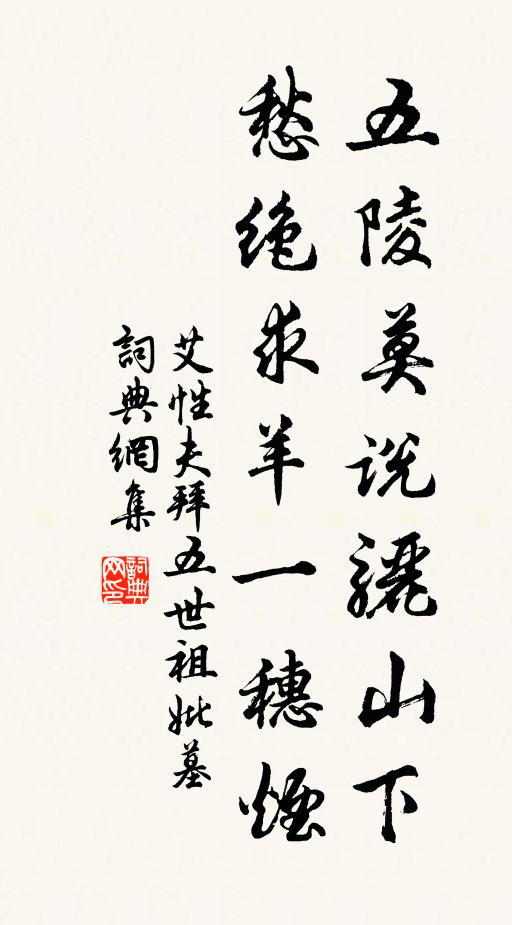 五陵莫說驪山下
愁絕求羊一穗煙
艾性夫拜五世祖妣墓
詞典網集
詞典
网印